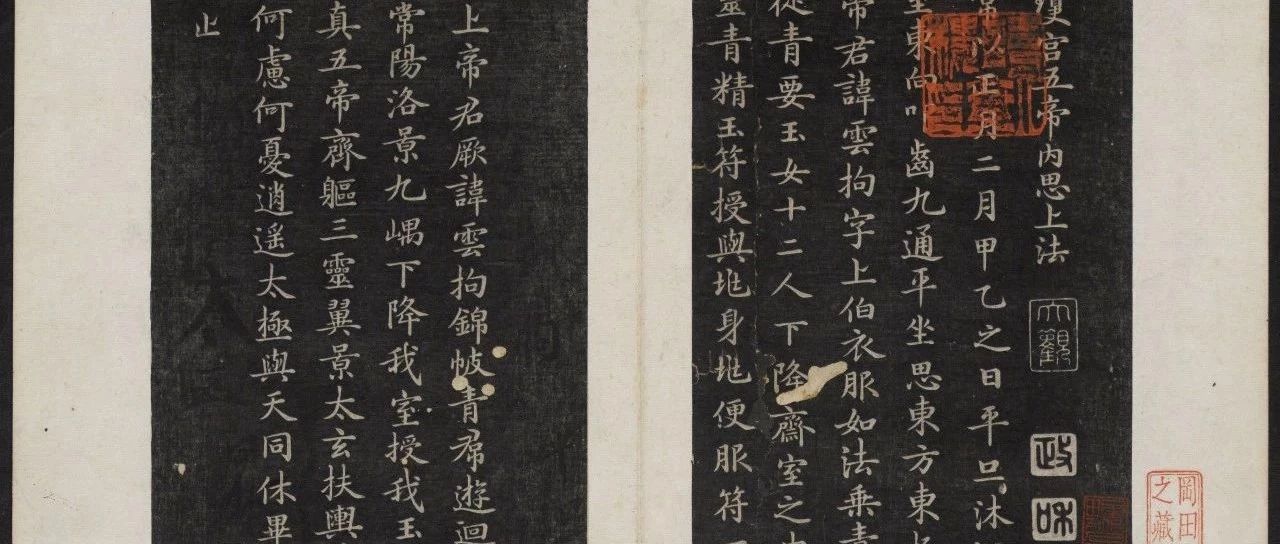 瓊宮五帝內思上法
常以正月二月甲乙之日平旦沐
室東向叩齒九通平坐思東方東
帝君諱雲拘字上伯衣服如法乘青
從青要玉女十二人下降齋室之
靈青精玉符授與兆身兆便服符
上帝君厥諱雲拘錦帔青帬遊迴
常陽洛景九嵎下降我室授我玉
真五帝齊軀三靈翼景太玄扶輿
何慮何憂逍遥太極與天同休畢
止
大觀
政和
岡田
之藏